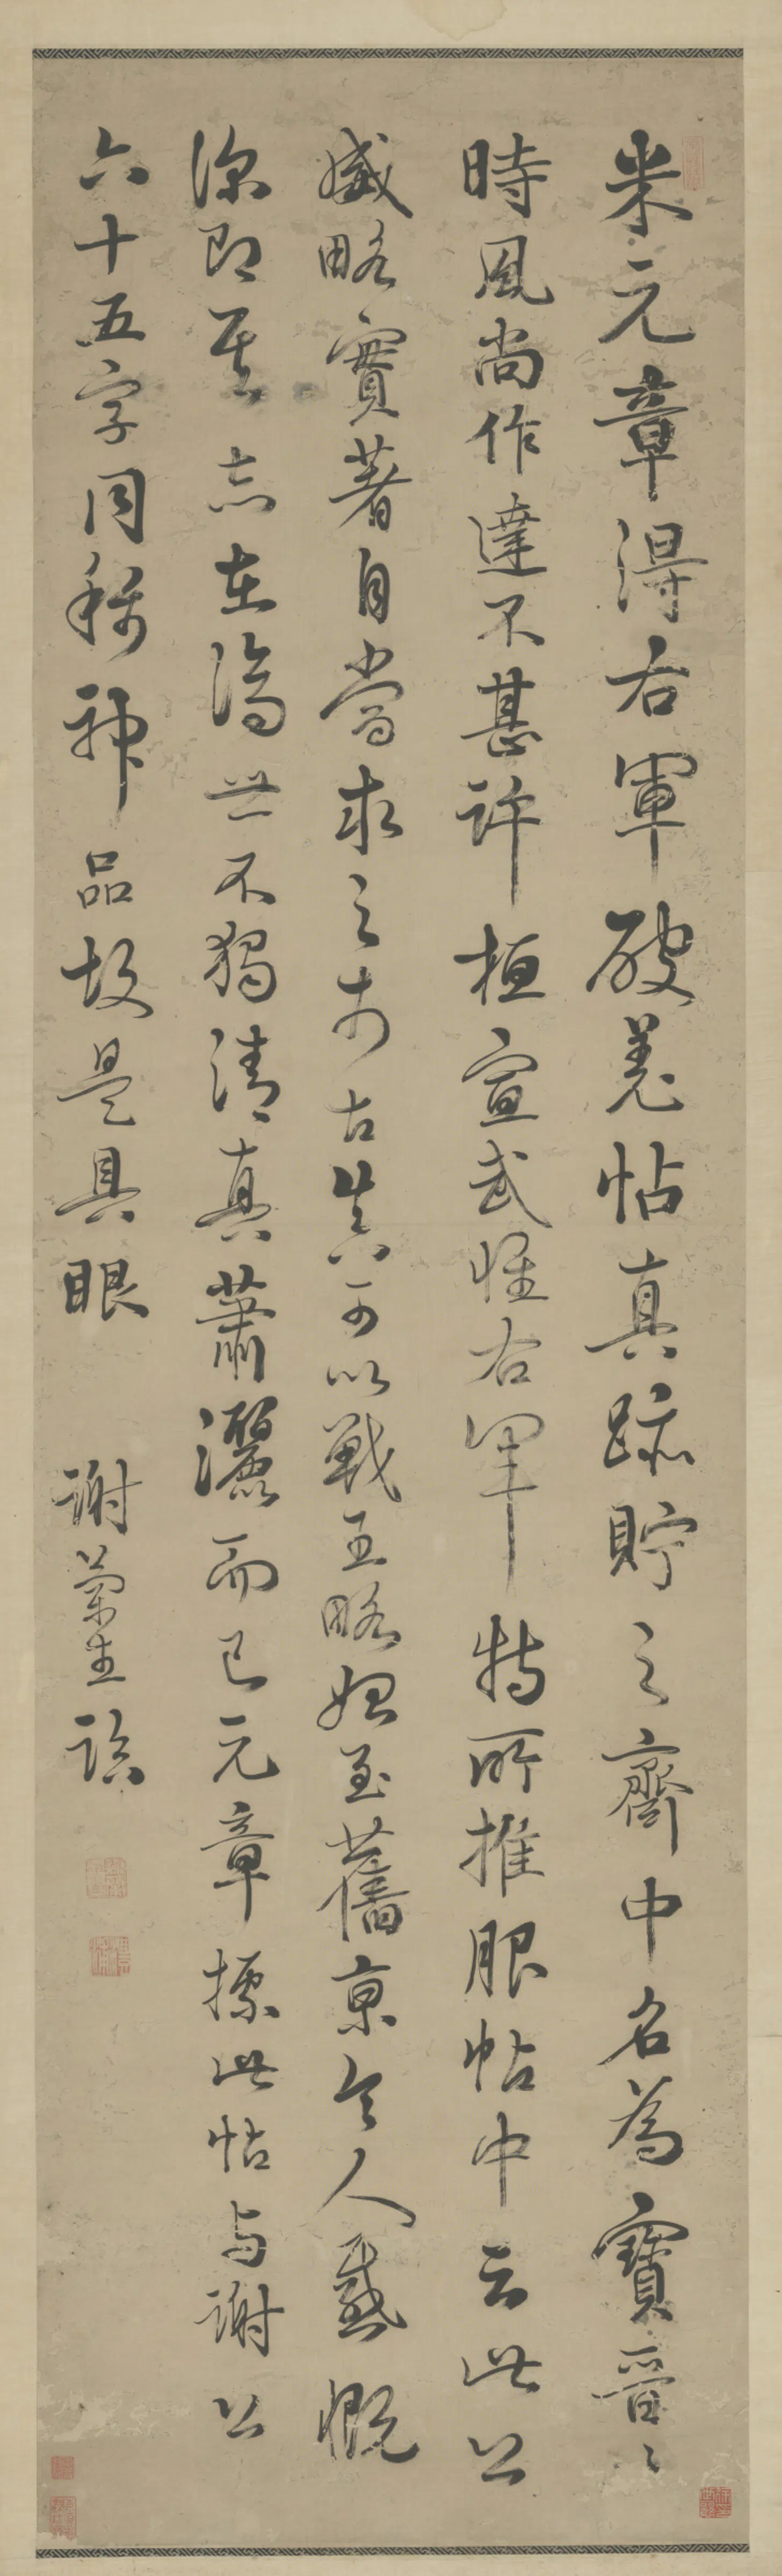 米元章得右軍破羌帖真跡貯之齋中名為寶晉〻
時風尚作達不甚許桓宣武惟右軍特所推服帖中云此公
威略實著自當求之於古真可以戰王略始至舊京令人感慨
深即其志在濟世不獨清真蕭灑而已元章摽此帖與謝公
六十五字同稱神品故是具眼 謝蘭生臨